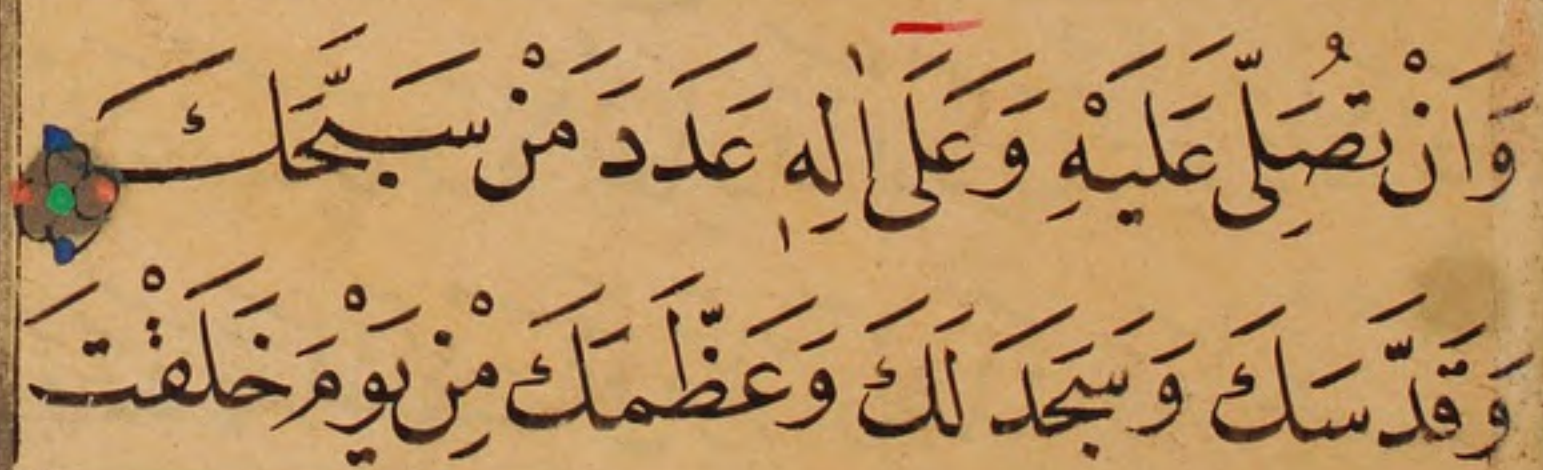 وَاَنْ تُصَلِّيَ عَلَيْهِ وَعَلَى اٰلِهٖ عَدَدَ مَنْ سَبَّحَكَ
وَقَدَّسَكَ وَسَجَدَ لَكَ وَعَظَّمَكَ مِنْ يَوْمَ خَلَقْتَ